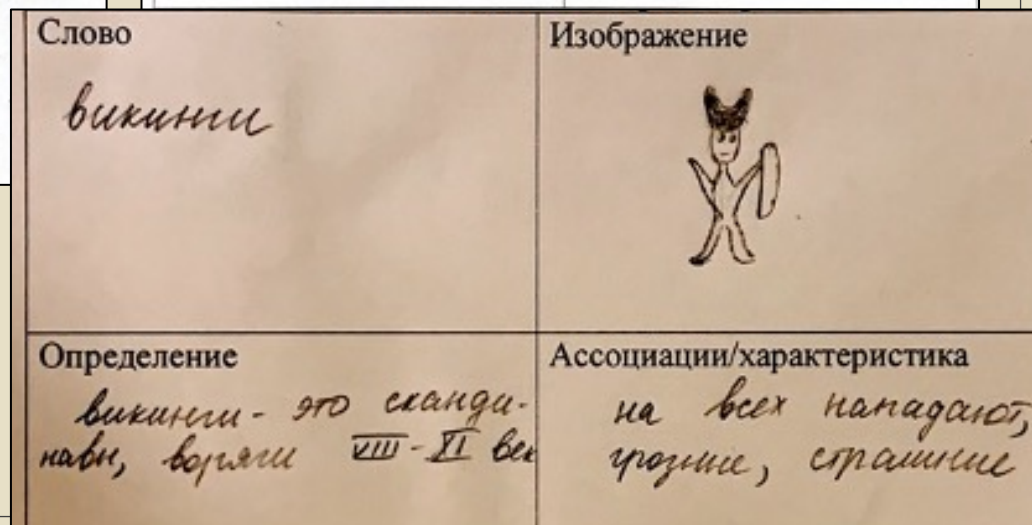 Слово
викинги
Изображение
Определение
викинги - это сканди-
навы, варяги VIII - XI век
Ассоциации/характеристика
на всех нападают,
грозные, страшные